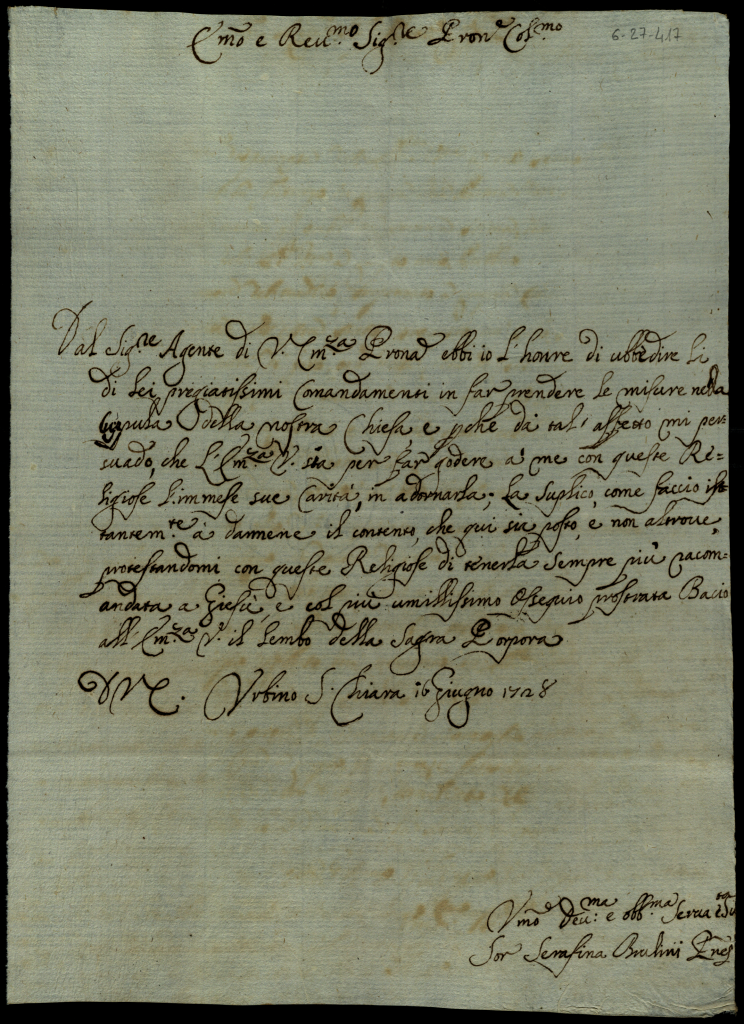 Em̃o e Reu.mo Sig.re Pron.e Col.mo
6-27-417
Dal Sig.re Agente di V. Em.za Prona ebbi io l'honre di ubbedire li
di Lei pregiatissimi Comandamenti in far prendere le misure nella
Cupula della nostra Chiesa, e p̃che da tal' affetto mi per
suado, che l'Em.za V. stia per far godere a' me con queste Re-
ligiose l'immese sue Carità, in adornarla; La Suplico, come faccio ist
tantem.te à darmene il contento, che qui sia posto, e non altroue,
protestandomi con queste Religiose di tenerla sempre più racom-
andata a Giesù, e col più umillissimo Ossequio prostrata Bacio
all'Em.za V. il lembo della Sagra Porpora
D V E. Urbino S. Chiara 16 Giugno 1728
Vm̃o Deu:ma e obb.ma Serua
Sor Serafina Brulini